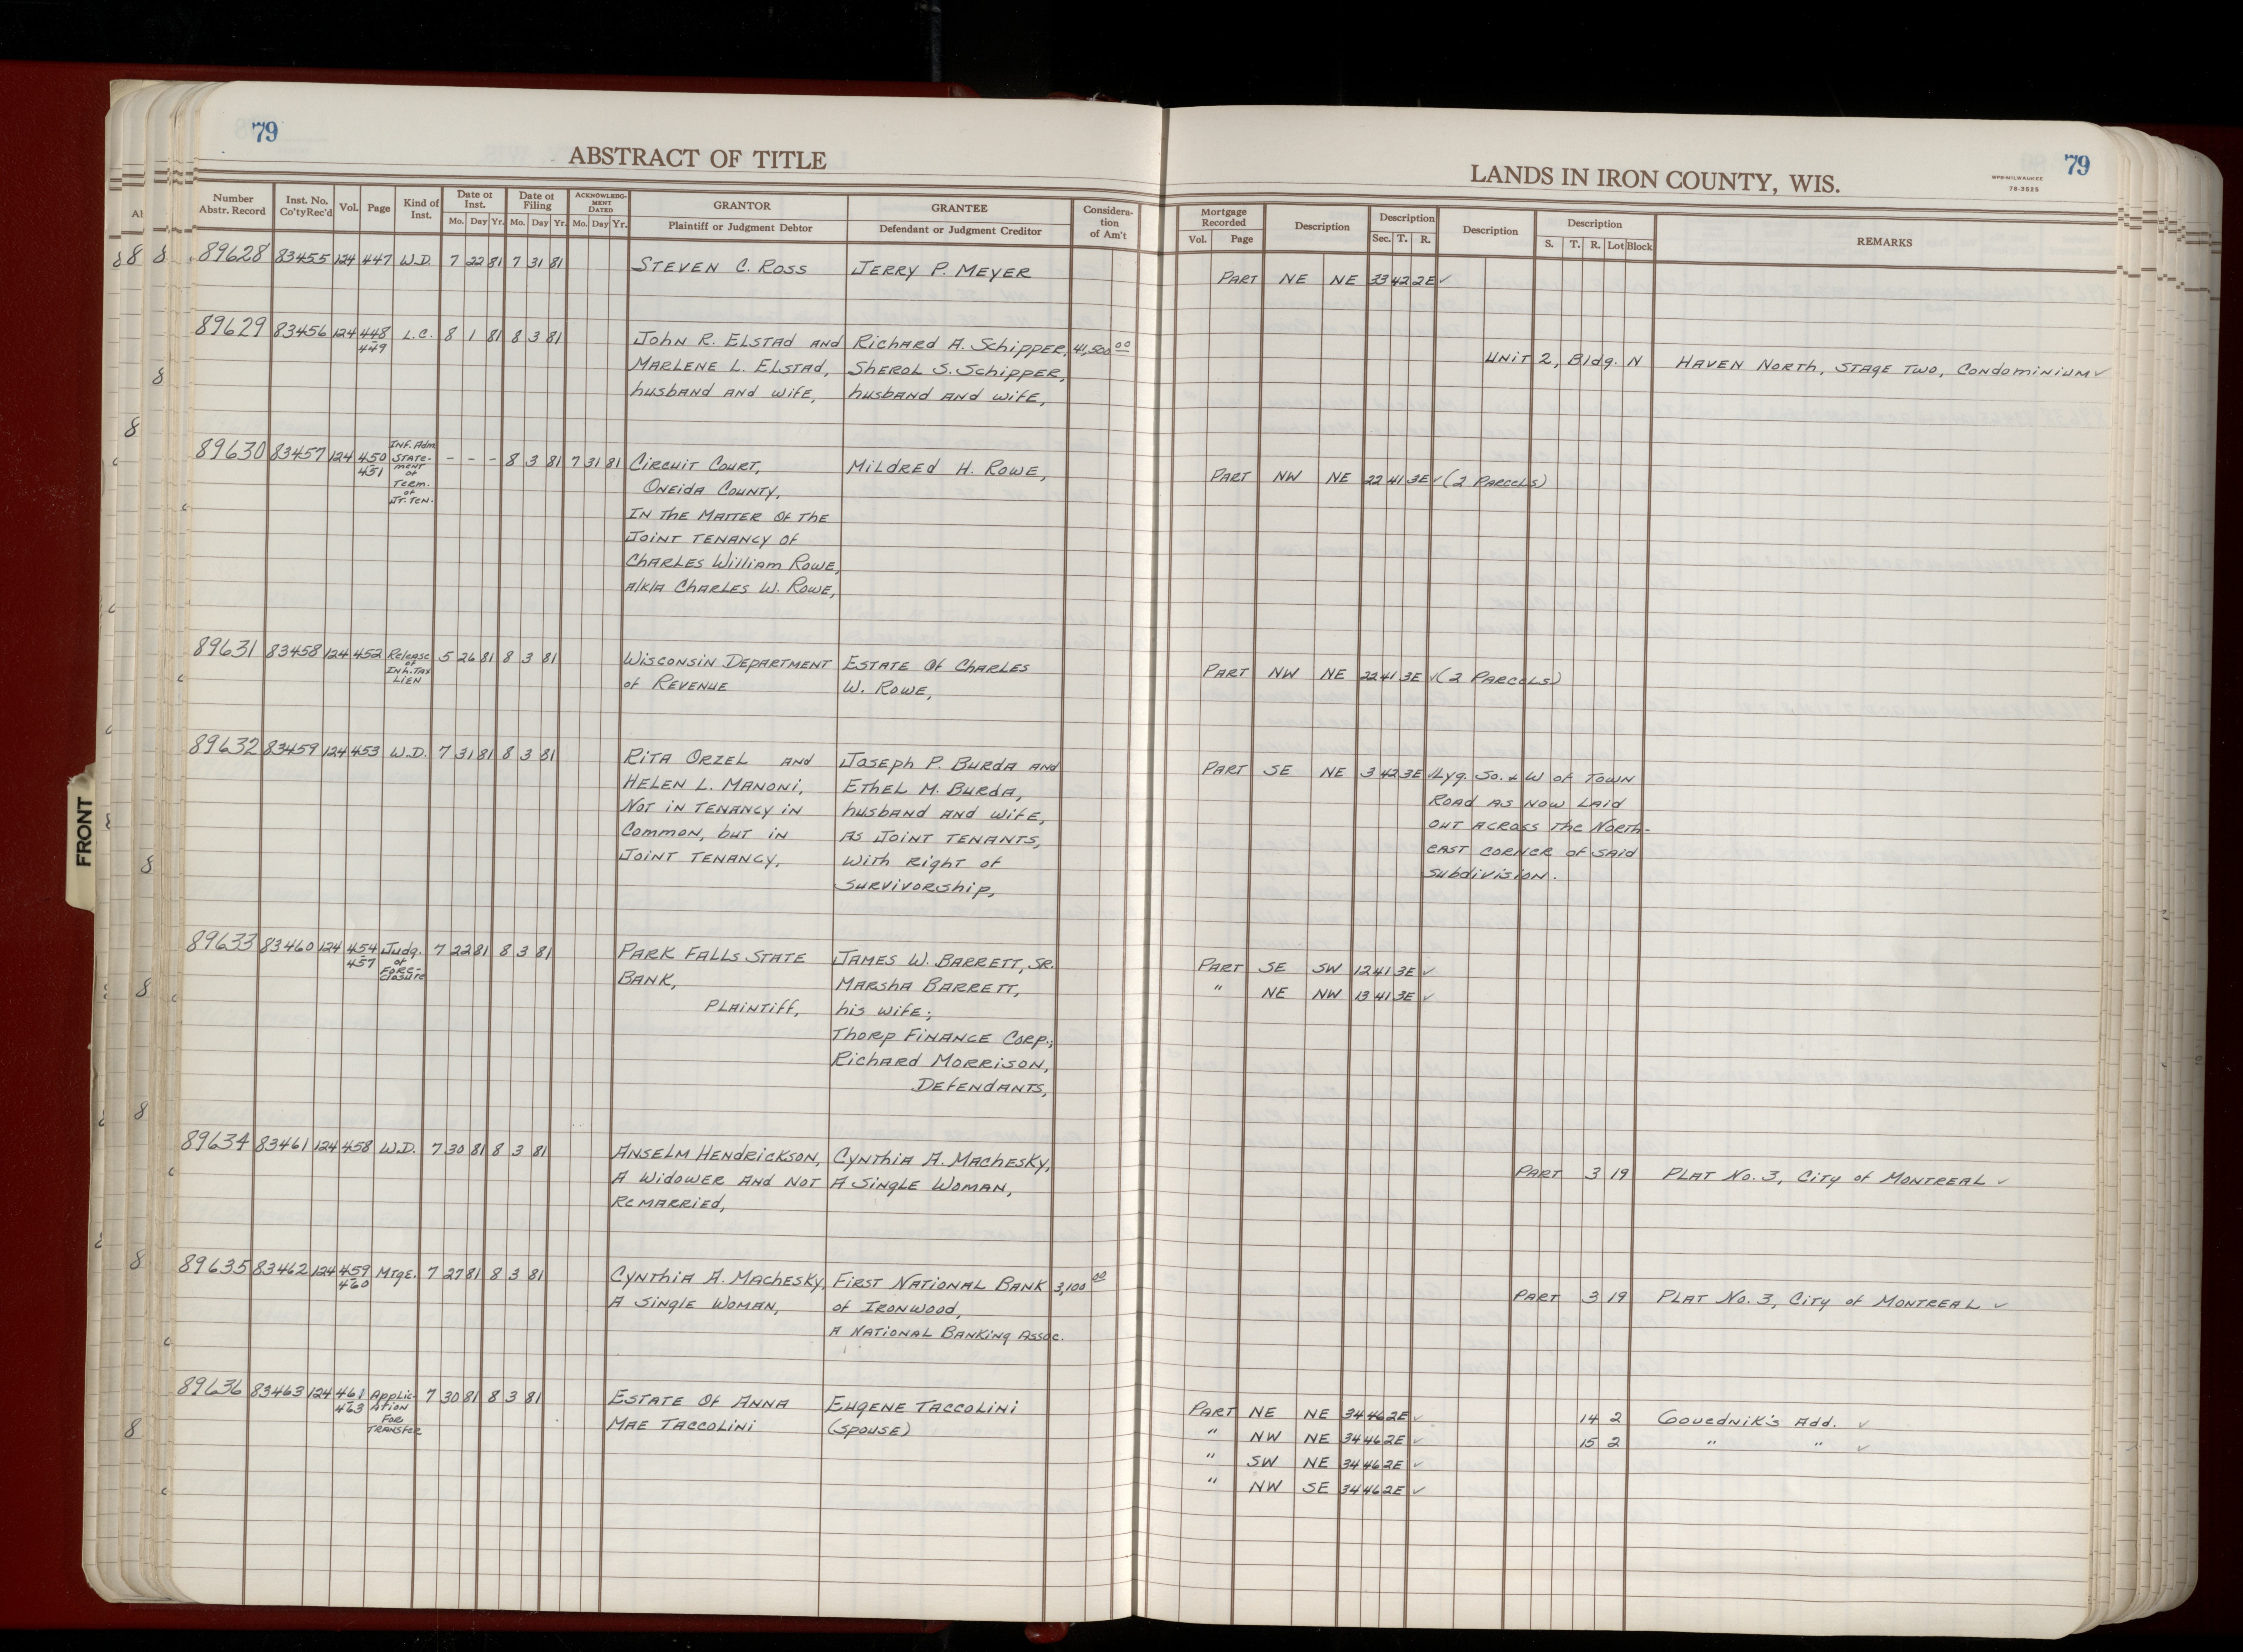 79
ABSTRACT OF TITLE
Number Abstr. Record
Inst. No. Co'ty Rec'd
Vol.
Page
Kind of Inst.
Date of Inst.
Mo. Day Yr.
Date of Filing
Mo. Day Yr.
ACKNOWLEDG-MENT DATED
Mo. Day Yr.
GRANTOR
Plaintiff or Judgment Debtor
GRANTEE
Defendant or Judgment Creditor
Considera-tion of Am't
79
LANDS IN IRON COUNTY, WIS.
MPB-MILWAUKEE
76-3525
Mortgage Recorded
Vol. Page
Description
Description
Sec. T. R.
Description
Description
S. T. R. Lot Block
REMARKS
89628 83455 124 447 W.D. 7 22 81 7 31 81 STEVEN C. ROSS JERRY P. MEYER PART NE NE 33 42 2E ✓
89629 83456 124 448 L.C. 8 1 81 8 3 81 JOHN R. ELSTAD AND RICHARD A. SCHIPPER, 41,500 00 UNIT 2, Bldg. N HAVEN NORTH, STAGE TWO, CONDOMINIUM ✓
449 MARLENE L. ELSTAD, SHEROL S. SCHIPPER,
husband AND wife, husband AND wife,
89630 83457 124 450 INF. Adm. - - - 8 3 81 7 31 81 CIRCUIT COURT, MILDRED H. ROWE, PART NW NE 22 41 3E ✓ (2 PARCELS)
451 STATE-
MENT
of
Term. ONEIDA COUNTY,
of
JT. TEN. IN THE MATTER OF THE
JOINT TENANCY OF
CHARLES WILLIAM ROWE,
A/K/A CHARLES W. ROWE,
89631 83458 124 452 Release 5 26 81 8 3 81 WISCONSIN DEPARTMENT ESTATE OF CHARLES PART NW NE 22 41 3E ✓ (2 PARCELS)
of
INh. TAX of REVENUE W. ROWE,
LIEN
89632 83459 124 453 W.D. 7 31 81 8 3 81 RITA ORZEL AND JOSEPH P. BURDA AND PART SE NE 3 42 3E ✓ Lyg. So. + W of TOWN
HELEN L. MANONI, ETHEL M. BURDA, ROAD AS NOW LAID
NOT IN TENANCY IN husband AND wife, OUT ACROSS THE NORTH-
COMMON, but IN AS JOINT TENANTS, EAST CORNER OF SAID
JOINT TENANCY, WITH RIGHT OF subdivision.
SURVIVORSHIP,
89633 83460 124 454 Judg. 7 22 81 8 3 81 PARK FALLS STATE JAMES W. BARRETT, SR. PART SE SW 12 41 3E ✓
457 of
FORE-
closure BANK, MARSHA BARRETT, " NE NW 13 41 3E ✓
PLAINTIFF, his wife;
THORP FINANCE CORP.;
RICHARD MORRISON,
DEFENDANTS,
89634 83461 124 458 W.D. 7 30 81 8 3 81 ANSELM HENDRICKSON, CYNTHIA A. MACHESKY, PART 3 19 PLAT No. 3, City of MONTREAL ✓
A WIDOWER AND NOT A SINGLE WOMAN,
REMARRIED,
89635 83462 124 459 Mtge. 7 27 81 8 3 81 CYNTHIA A. MACHESKY, FIRST NATIONAL BANK 3,100 00 PART 3 19 PLAT No. 3, City of MONTREAL ✓
460 A SINGLE WOMAN, of IRONWOOD,
A NATIONAL BANKING ASSOC.
89636 83463 124 461 APPLIC- 7 30 81 8 3 81 ESTATE OF ANNA EUGENE TACCOLINI PART NE NE 34 46 2E ✓ 14 2 GOUEDNIK'S Add. ✓
463 ATION
FOR
TRANSFER MAE TACCOLINI (SPOUSE) " NW NE 34 46 2E ✓ 15 2 " " ✓
" SW NE 34 46 2E ✓
" NW SE 34 46 2E ✓
FRONT